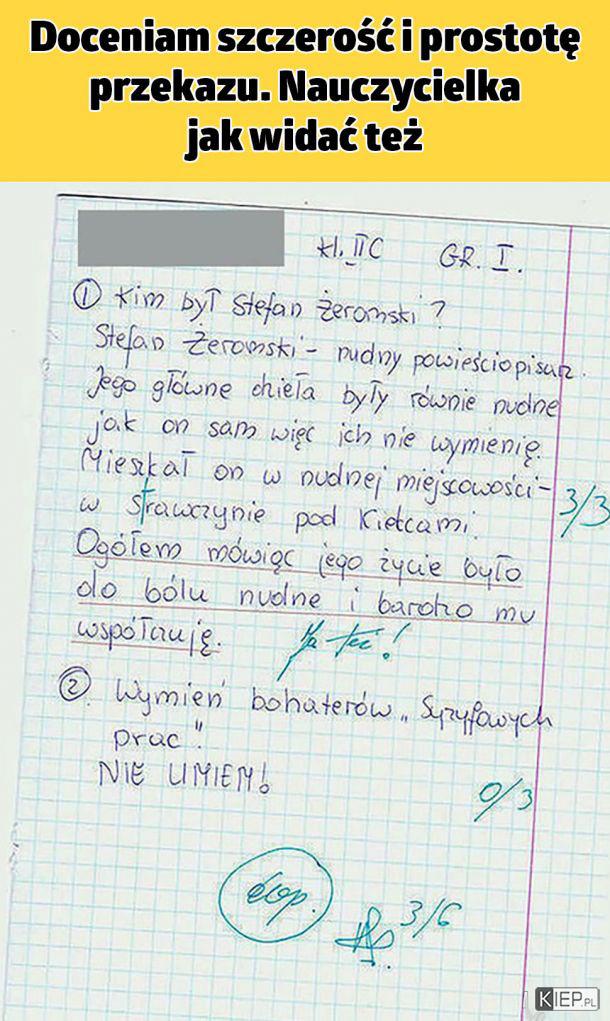 Doceniam szczerość i prostotę
przekazu. Nauczycielka
jak widać też
kl. II C GR. I.
① Kim był Stefan Żeromski?
Stefan Żeromski - nudny powieściopisarz.
Jego główne dzieła były równie nudne
jak on sam więc ich nie wymienię.
Mieszkał on w nudnej miejscowości -
w Strawczynie pod Kielcami.
3/3
Ogółem mówiąc jego życie było
do bólu nudne i bardzo mu
współczuję. Ja też!
② Wymień bohaterów "Syzyfowych
prac".
NIE UMIEM!
0/3
dop.
3/6
KIEP.PL